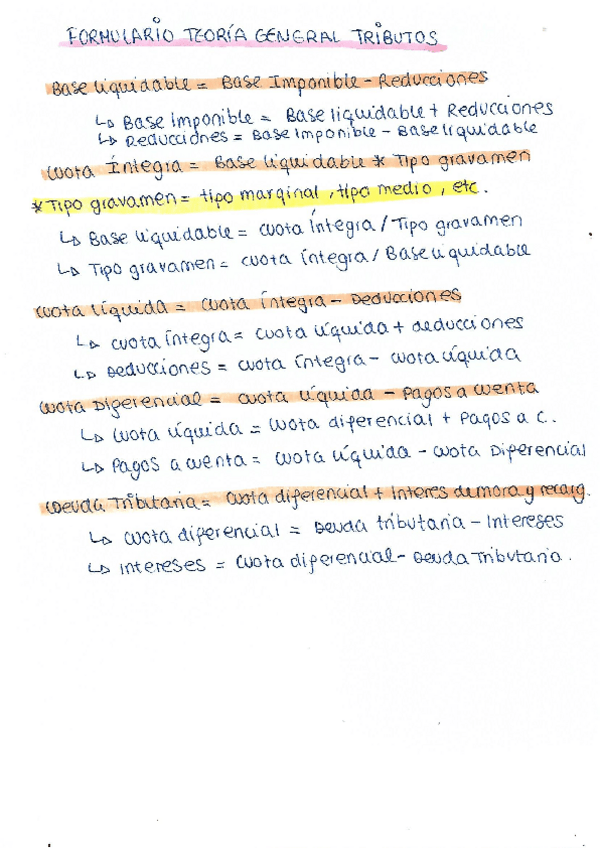 FORMULARIO TEORÍA GENERAL TRIBUTOS
Base liquidable = Base Imponible - Reducciones
↳ Base Imponible = Base liquidable + Reducciones
↳ Reducciones = Base Imponible - Base liquidable
Cuota Íntegra = Base liquidable * Tipo gravamen
* Tipo gravamen = tipo marginal, tipo medio, etc.
↳ Base liquidable = Cuota Íntegra / Tipo gravamen
↳ Tipo gravamen = Cuota íntegra / Base liquidable
Cuota líquida = Cuota íntegra - Deducciones
↳ Cuota íntegra = Cuota líquida + deducciones
↳ Deducciones = Cuota íntegra - Cuota líquida
Cuota Diferencial = Cuota líquida - Pagos a cuenta
↳ Cuota líquida = Cuota diferencial + Pagos a c.
↳ Pagos a cuenta = Cuota líquida - Cuota Diferencial
Deuda Tributaria = Cuota diferencial + Interes demora y recarg.
↳ Cuota diferencial = Deuda tributaria - Intereses
↳ Intereses = Cuota diferencial - Deuda Tributaria.